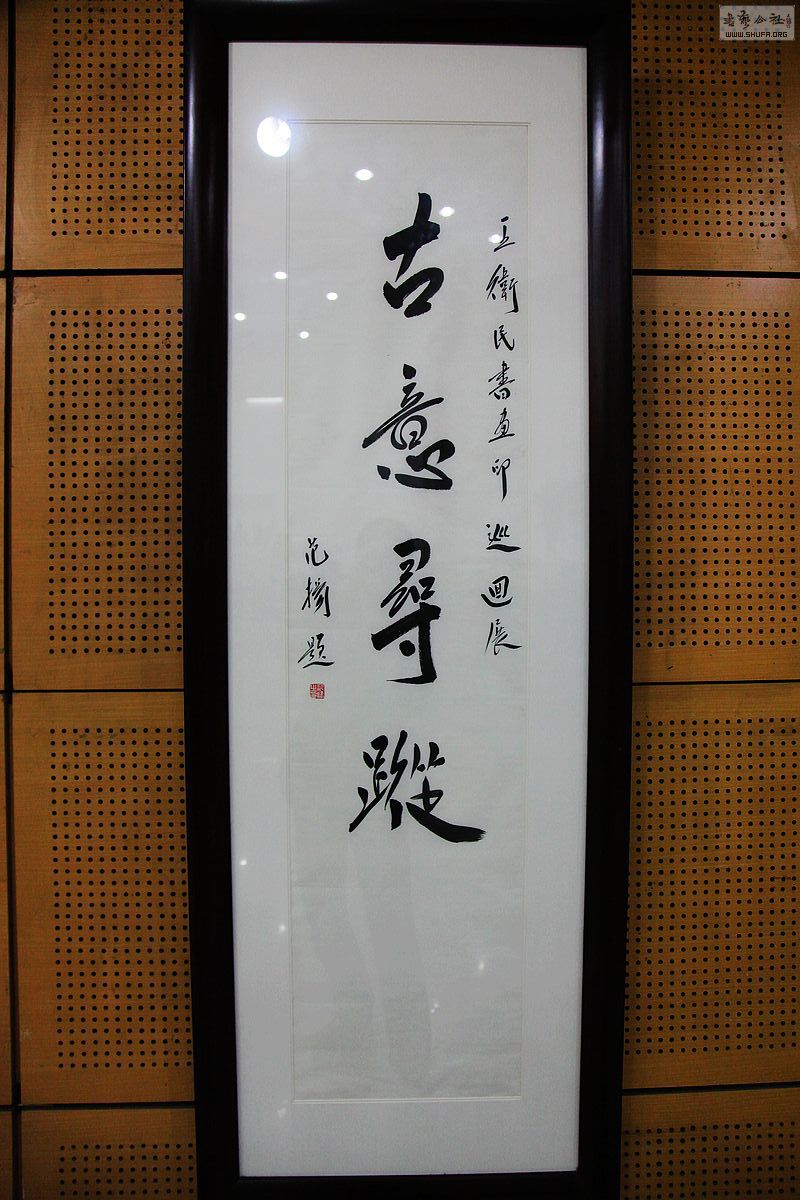 王衛民書畫印巡迴展
古意尋蹤
范揚題
書藝公社
WWW.SHUFA.ORG